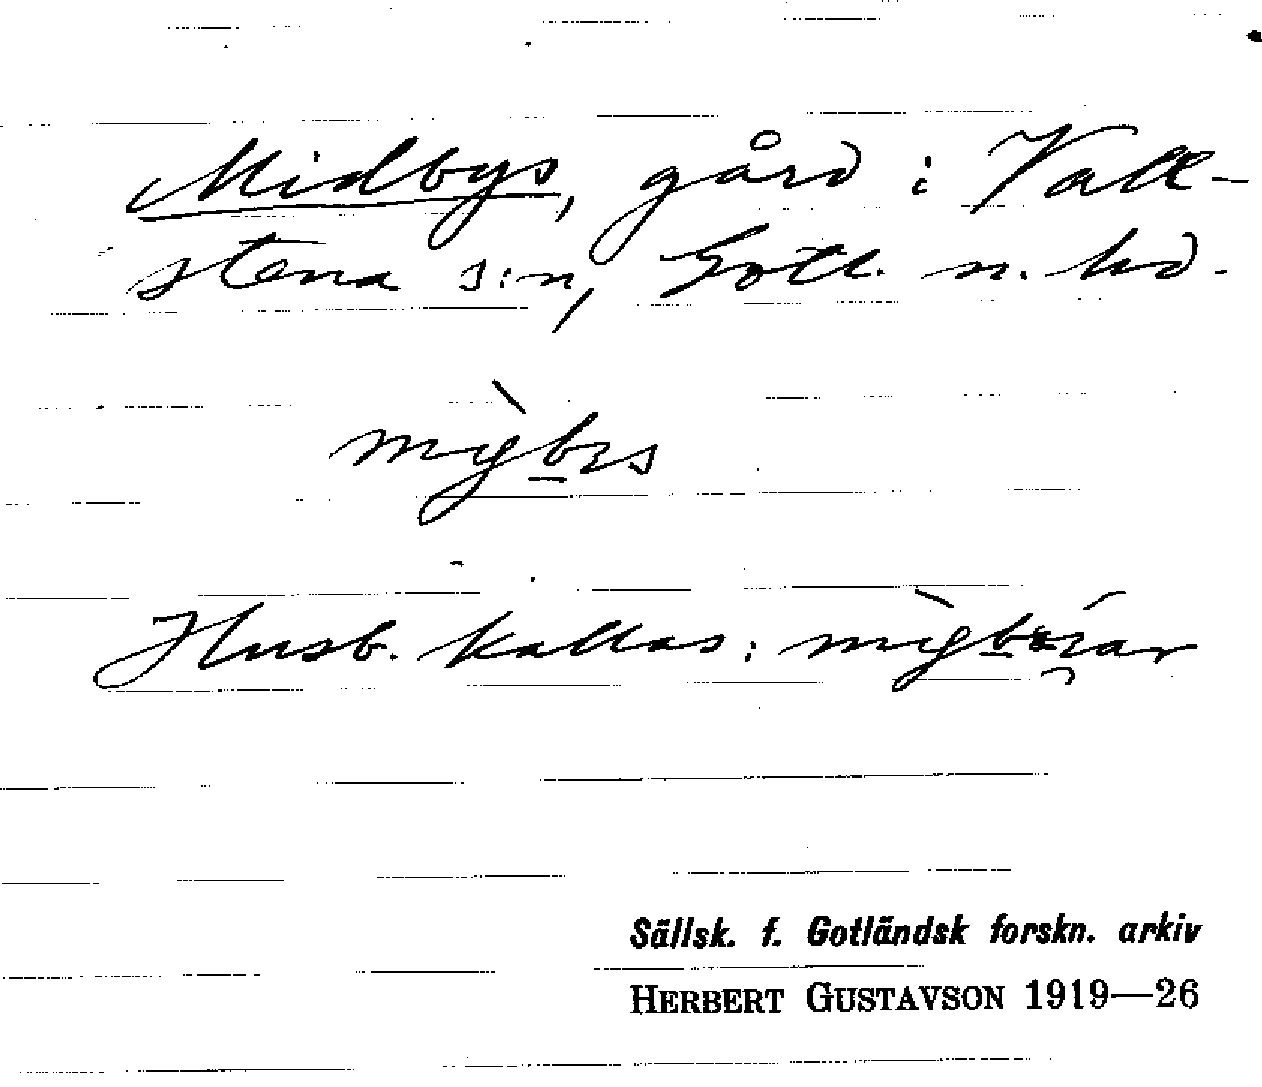 Midbys, gård i Vall-
stena s:n, Gotl. n. hd.
mỳbıs
Husb. kallas:
Sällsk. f. Gotländsk forskn. arkiv
HERBERT GUSTAVSON 1919—26